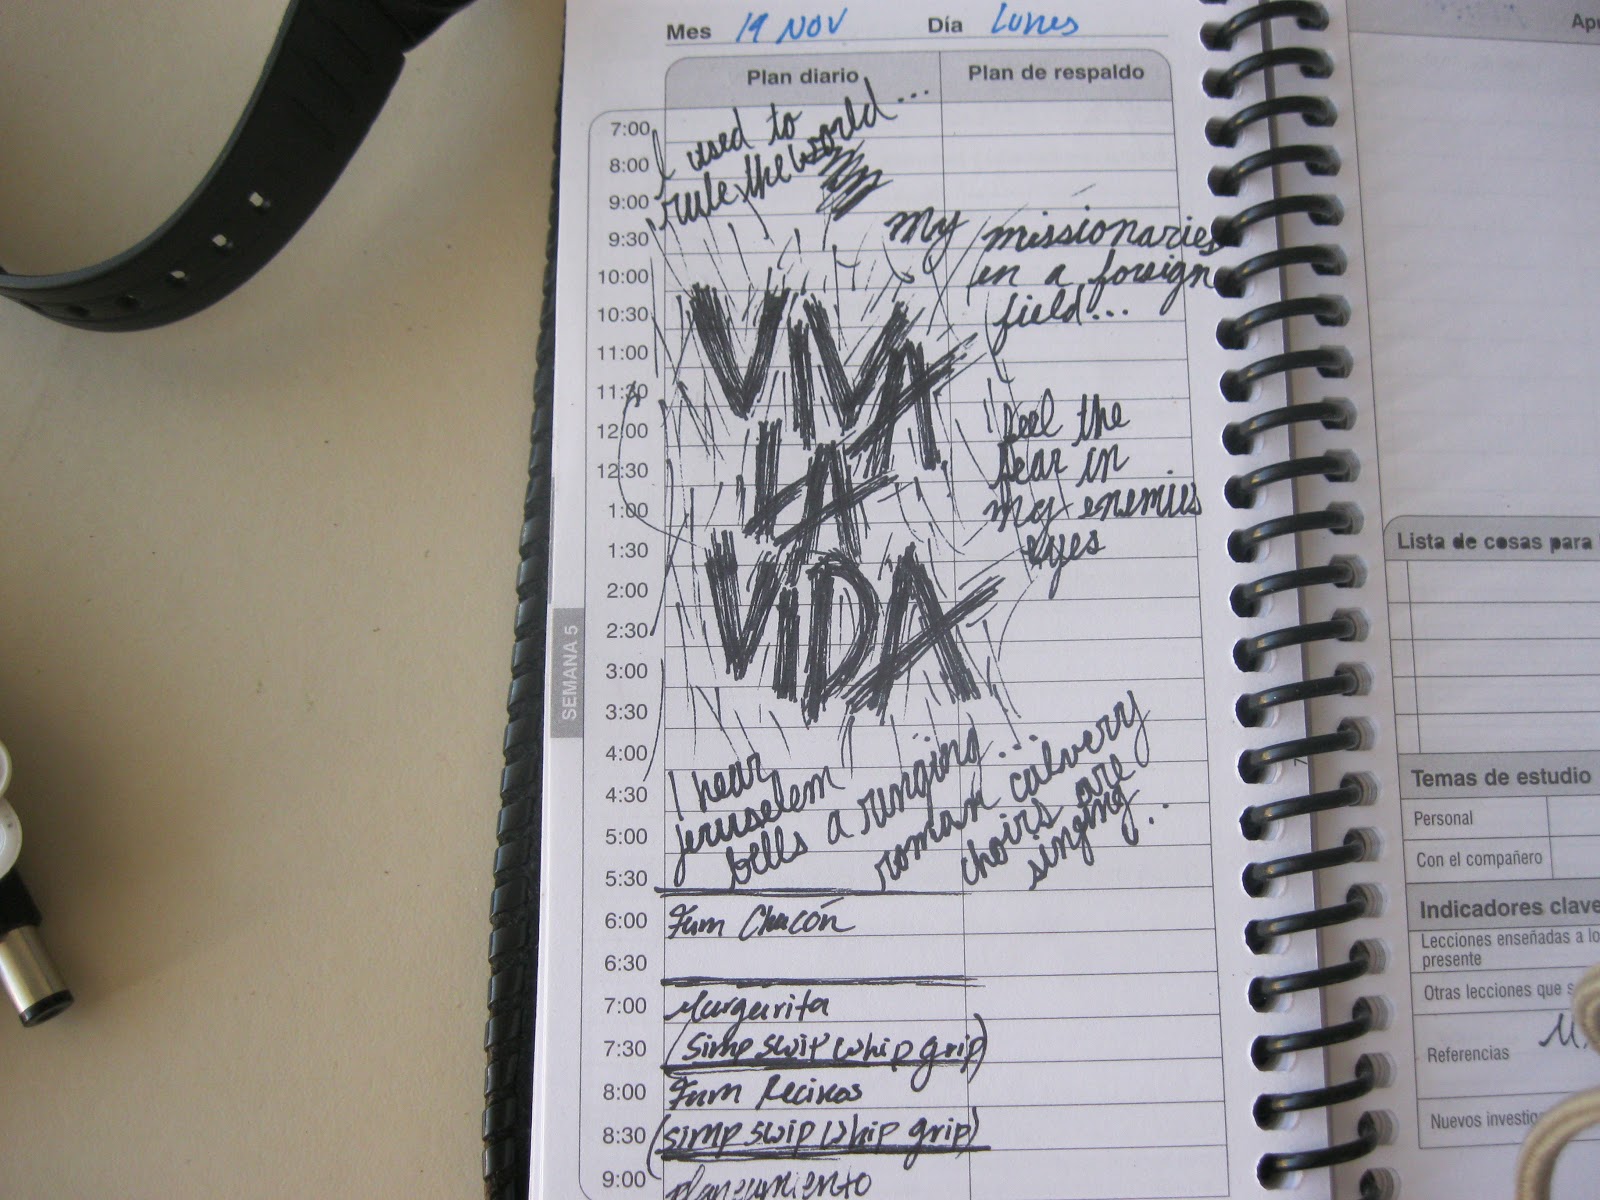 Mes 19 NOV Día Lunes
Plan diario Plan de respaldo
7:00
8:00
9:00
9:30
10:00
10:30
11:00
11:30
12:00
12:30
1:00
1:30
2:00
2:30
3:00
3:30
4:00
4:30
5:00
5:30
6:00
6:30
7:00
7:30
8:00
8:30
9:00
SEMANA 5
I used to
rule the world...
My missionaries
in a foreign
field...
VIVA
LA
VIDA
feel the
fear in
my enemies
eyes
I hear
jeruselem
bells a runging...
roman calvery
choirs are
singing...
Fam Chacón
Margarita
(simp swit whip grip)
Fam
(simp swip whip grip)
planeamiento
Lista de cosas para
Temas de estudio
Personal
Con el compañero
Indicadores clave
Lecciones enseñadas a lo
presente
Otras lecciones que s
Referencias
Nuevos investig